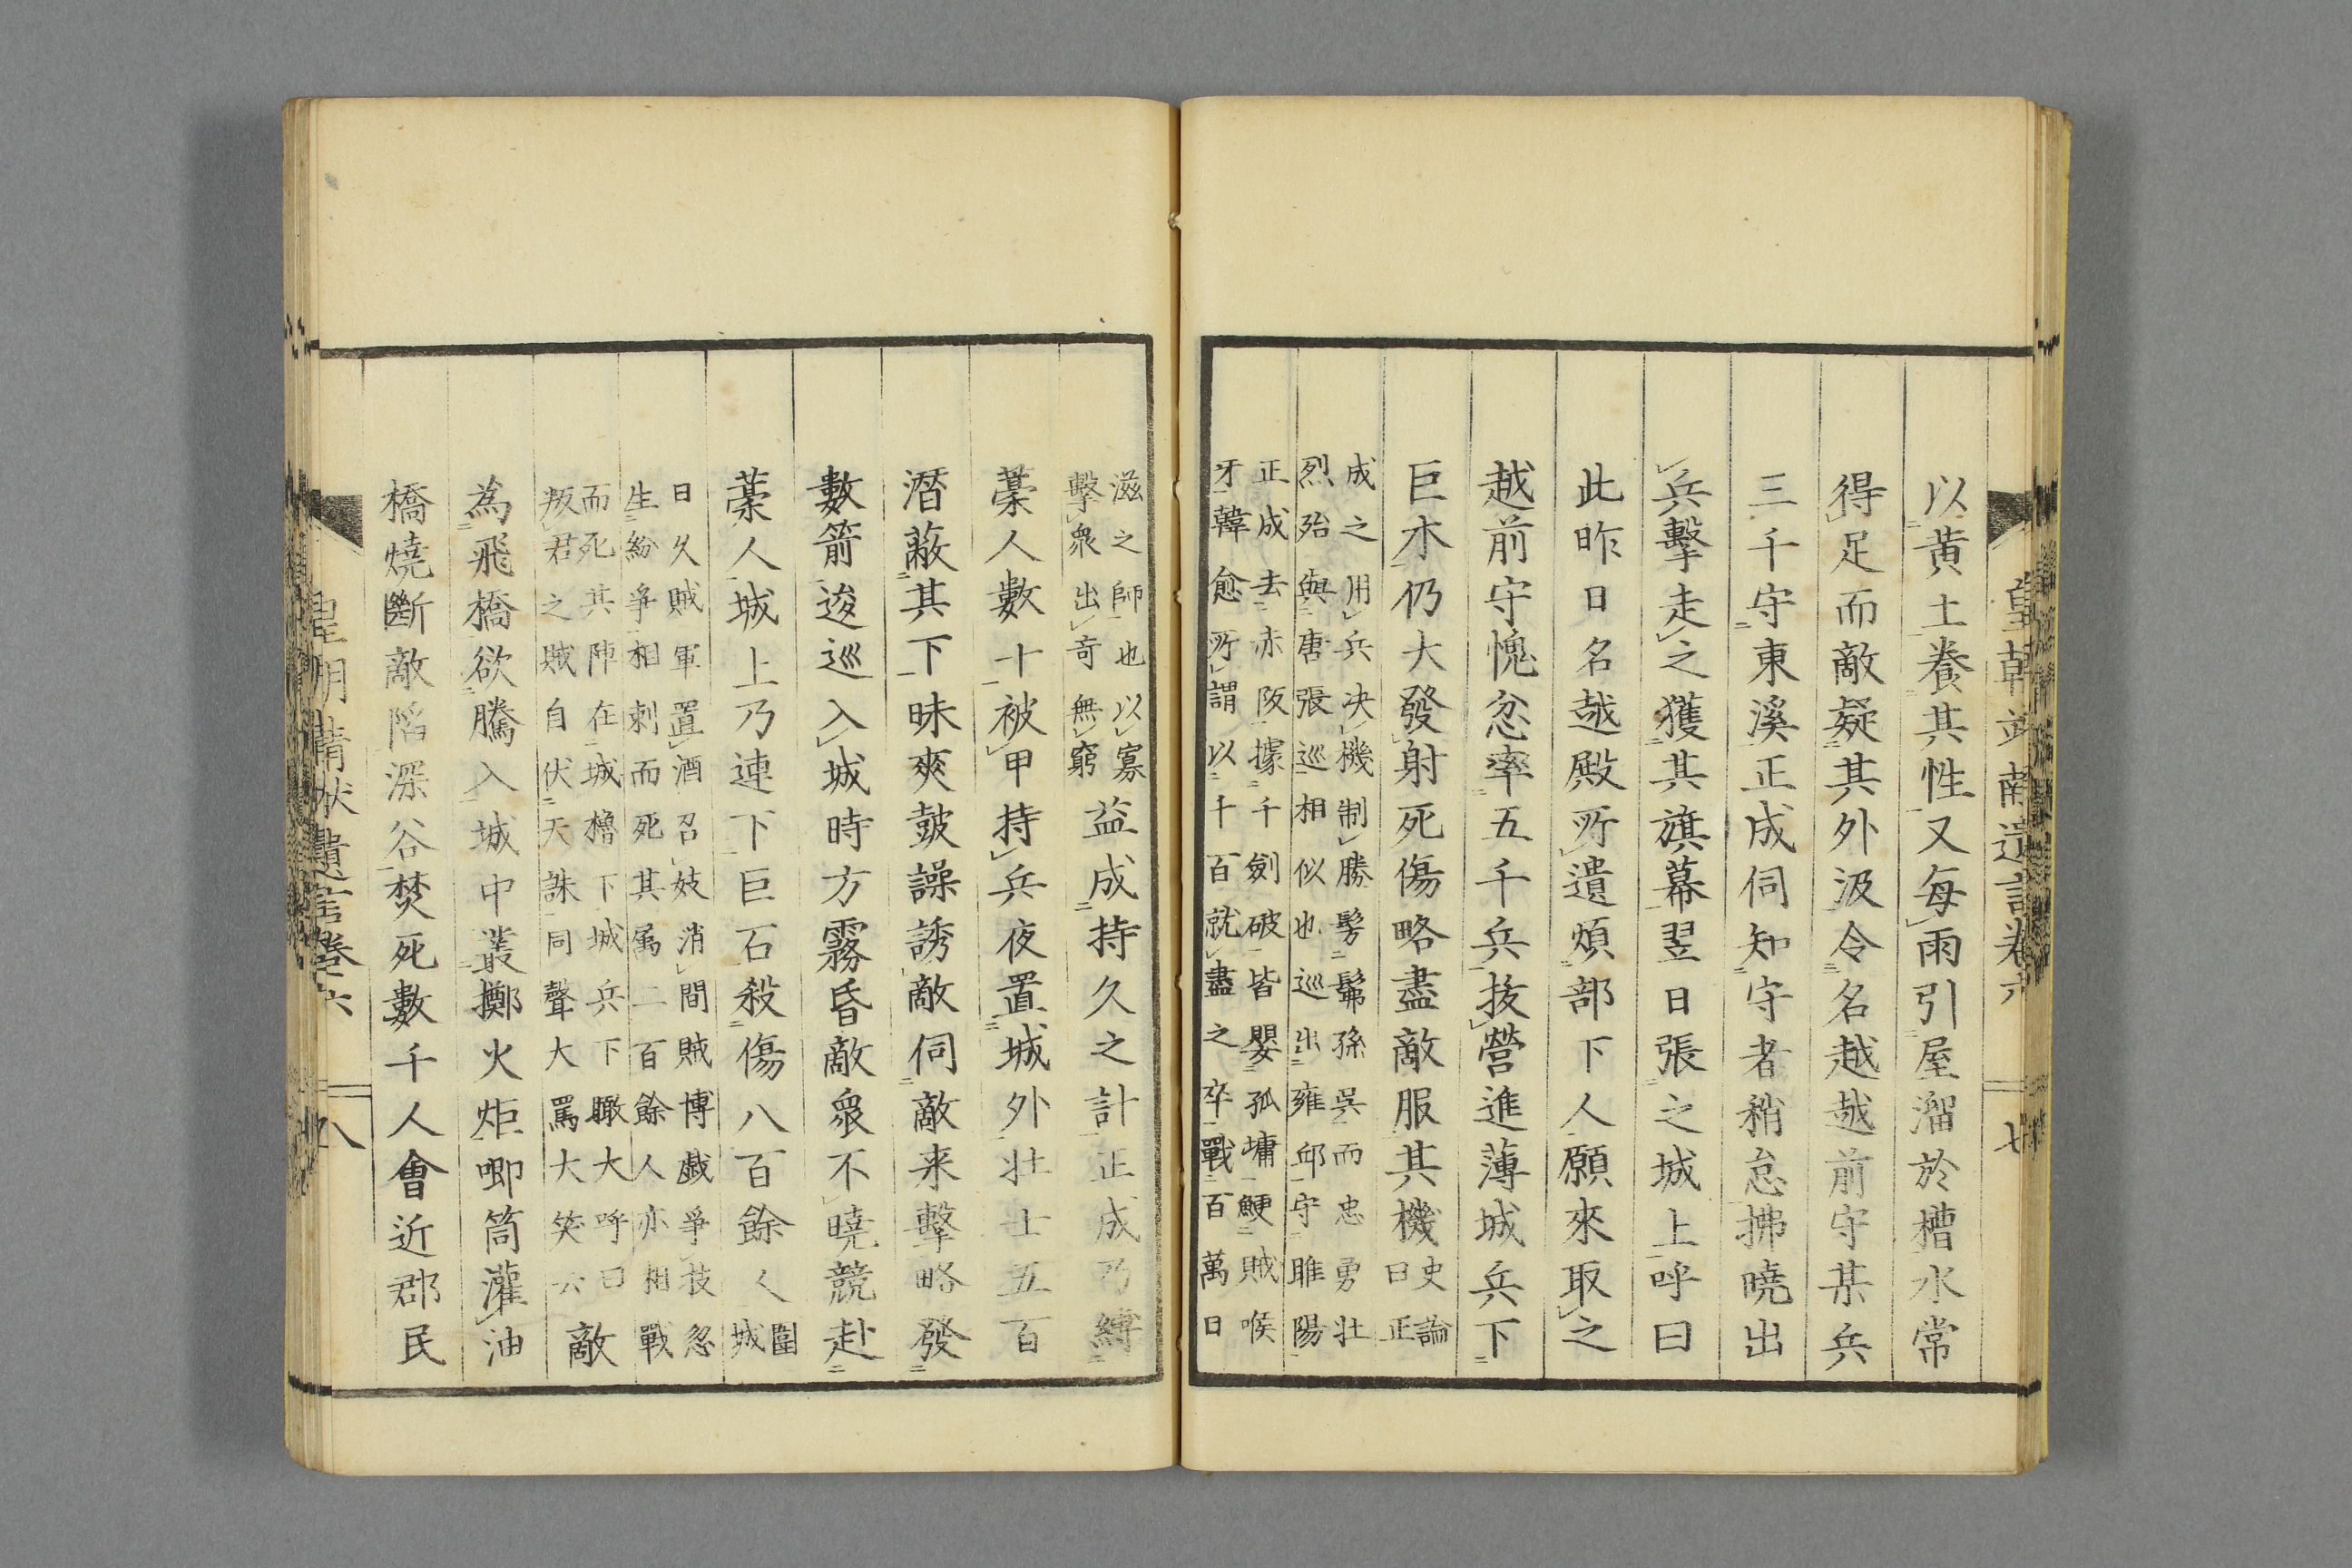 以黄土養其性又每雨引屋溜於槽水常
得足而敵疑其外汲令名越越前守某兵
三千守東溪正成伺知守者稍怠拂曉出
兵擊走之獲其旗幕翌日張之城上呼曰
此昨日名越殿所遺煩部下人願來取之
越前守愧忿率五千兵拔營進薄城兵下
巨木仍大發射死傷略盡敵服其機
史論
曰正
成之用兵决機制勝髣髴孫吳而忠勇壮
烈殆與唐張巡相似也巡出雍邱守睢陽
正成去赤阪據千劍破皆嬰孤墉鯁賊喉
牙韓愈所謂以千百就盡之卒戰百萬日
滋之師也以寡
擊衆出奇無窮
益成持久之計正成乃縛
藁人數十被甲持兵夜置城外壮士五百
潛蔽其下昧爽鼓譟誘敵伺敵来擊略發
數箭逡巡入城時方霧昏敵衆不曉競赴
藁人城上乃連下巨石殺傷八百餘人
圍
城
日久賊軍置酒召妓消間賊博戯爭技忽
生紛爭相刺而死其属二百餘人亦相戰
而死其陣在城櫓下城兵下瞰大呼曰
叛君之賊自伏天誅同聲大罵大笑云
敵
為飛橋欲騰入城中叢擲火炬喞筒灌油
橋燒斷敵陷深谷焚死數千人會近郡民
卷六 八